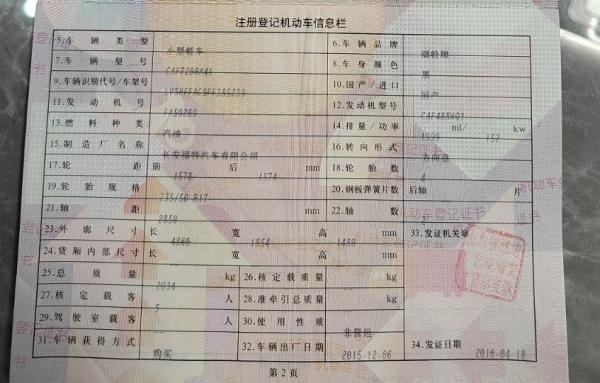 注册登记机动车信息栏
5.车辆类型 小型轿车 6.车辆品牌 福特牌
7.车辆型号 CAF7200A4L 8.车身颜色 黑
9.车辆识别代号/车架号 10.国产/进口 国产
11.发动机号 12.发动机型号
13.燃料种类 汽油 14.排量/功率 1999 ml/ kw
15.制造厂名称 长安福特汽车有限公司 16.转向形式 方向盘
17.轮距 前 1578 后 1574 mm 18.轮胎数 4
19.轮胎规格 235/50 R17 20.钢板弹簧片数 后轴 片
21.轴距 2850 mm 22.轴数
23.外廓尺寸 长 宽 1854 高 mm 33.发证机关章
24.货厢内部尺寸 长 宽 高 mm
25.总质量 2034 kg 26.核定载质量 kg
27.核定载客 5 人 28.准牵引总质量 kg
29.驾驶室载客 人 30.使用性质 非营运
31.车辆获得方式 购买 32.车辆出厂日期 2015-12-06 34.发证日期 2016-04-18
第2页